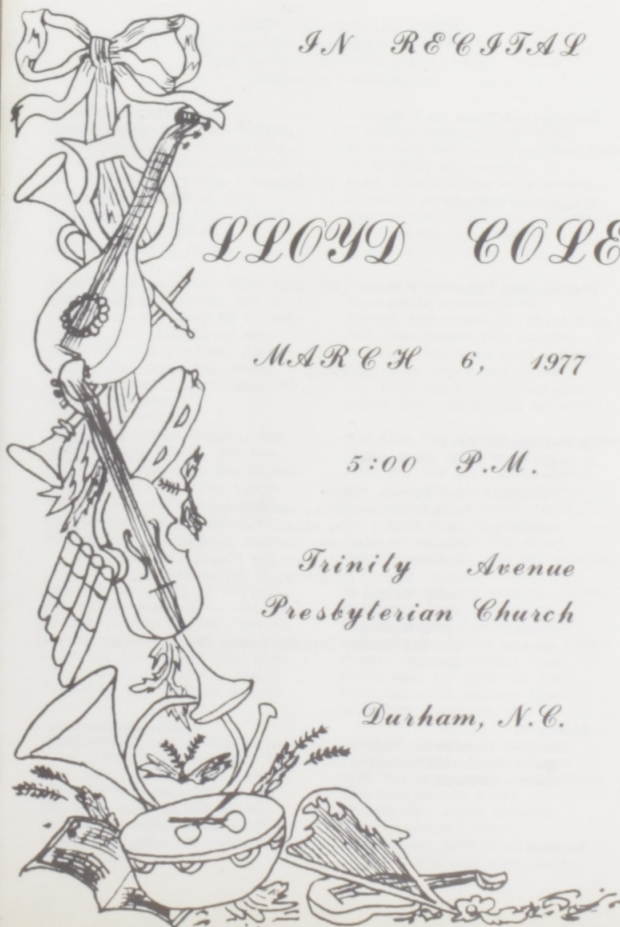 IN RECITAL
LLOYD COLE
MARCH 6, 1977
5:00 P.M.
Trinity Avenue
Presbyterian Church
Durham, N.C.